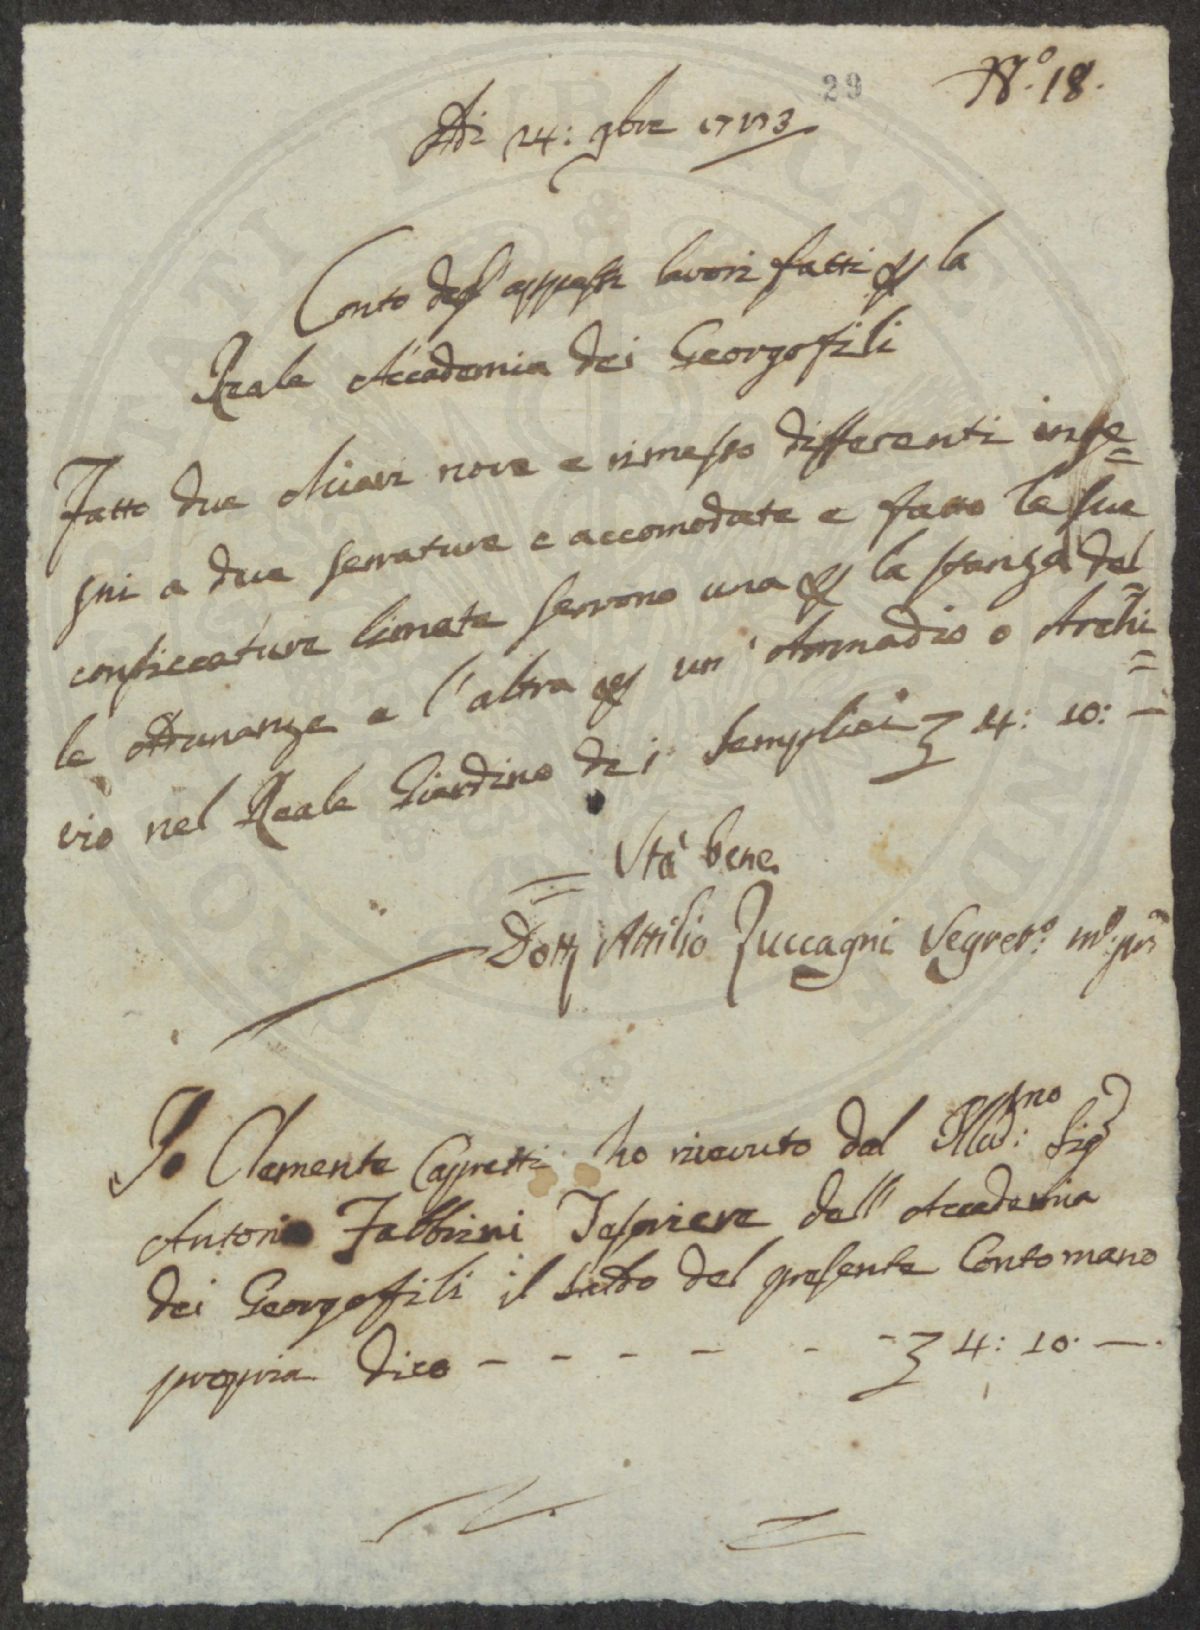 29
N.º 18.
Adi 24: 9bre 1773
Conto degl'appresso lavori fatti p la
Reale Accademia dei Georgofili
Fatto due chiavi nove e rimesso differenti inge=
gni a due serrature e accomodate e fatto le sue
conficcature limate servono una p la stanza del=
le Adunanze e l'altra p un' Armadio o Archi=
vio nel Reale Giardino dei Semplici £ 4: 10: —
Stà bene
Dott Attilio Zuccagni Segret.º m.º pp.ª
Io Clemente Capretti ho ricevuto dal Illu:smo Sig
Antonio Fabbrini Tesoriere dell'Accademia
dei Georgofili il saldo del presente Conto mano
propria dico - - - - - - £ 4: 10. —.